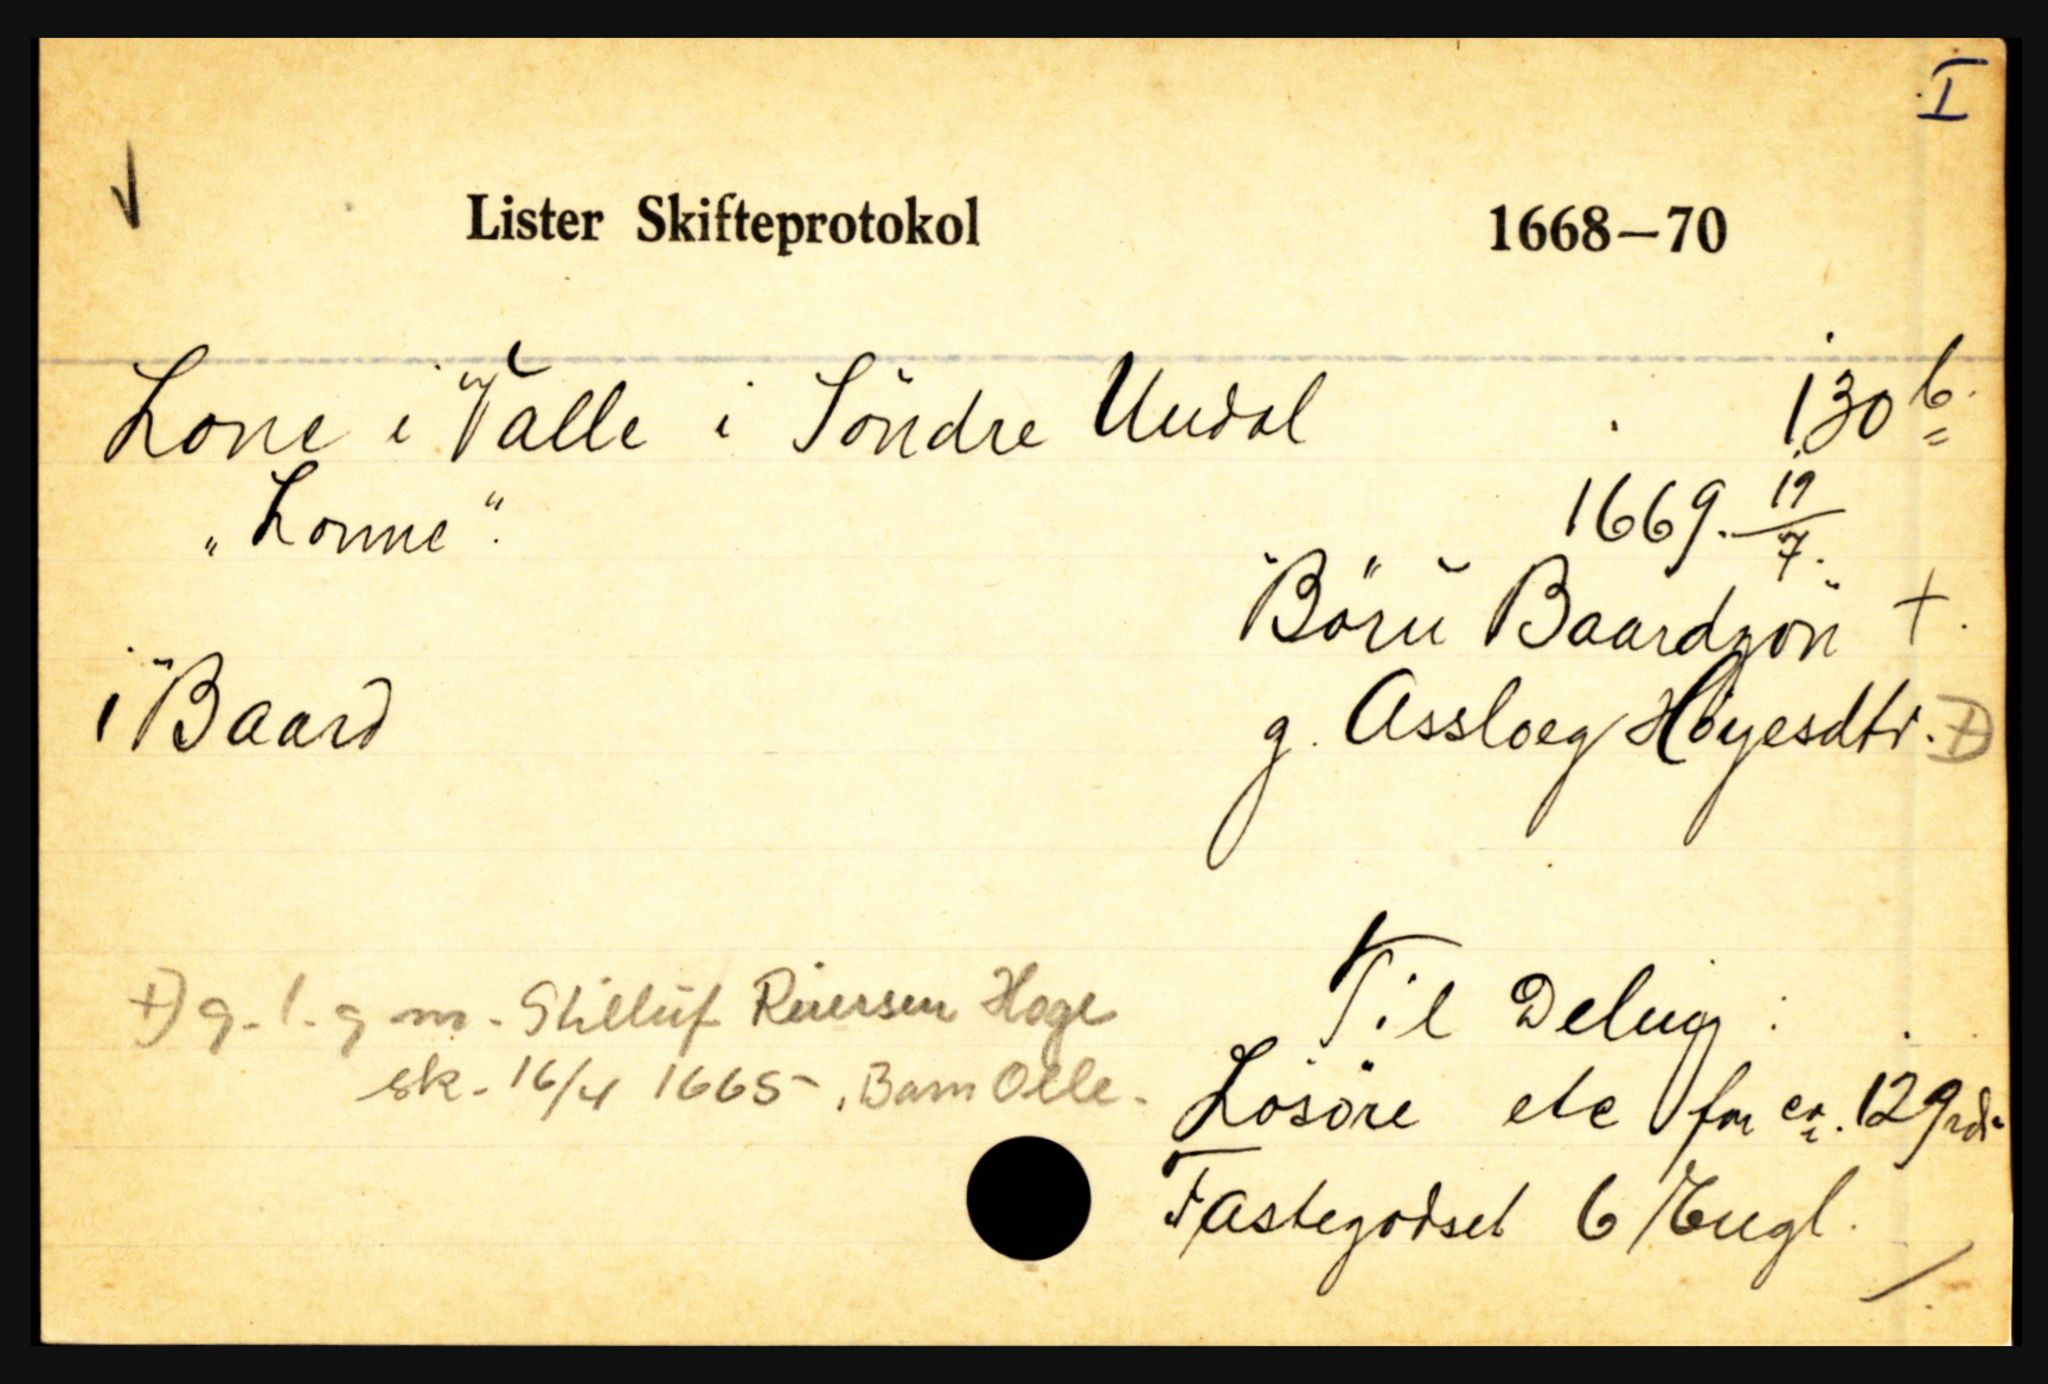 I
Lister Skifteprotokol 1668–70
Lone i Valle i Söndre Undal 130 b.
"Lonne". 1669. 19/7.
Böru Baardzön +.
1 Baard g. Assloeg Höyesdtr. +)
+) g. 1. g m. Stilluf Reiersen Hage
sk. 16/4 1665, Barn Olle.
Til Deling:
Lösöre etc for ca. 129 rdr
Fastegodset 6 Engl.